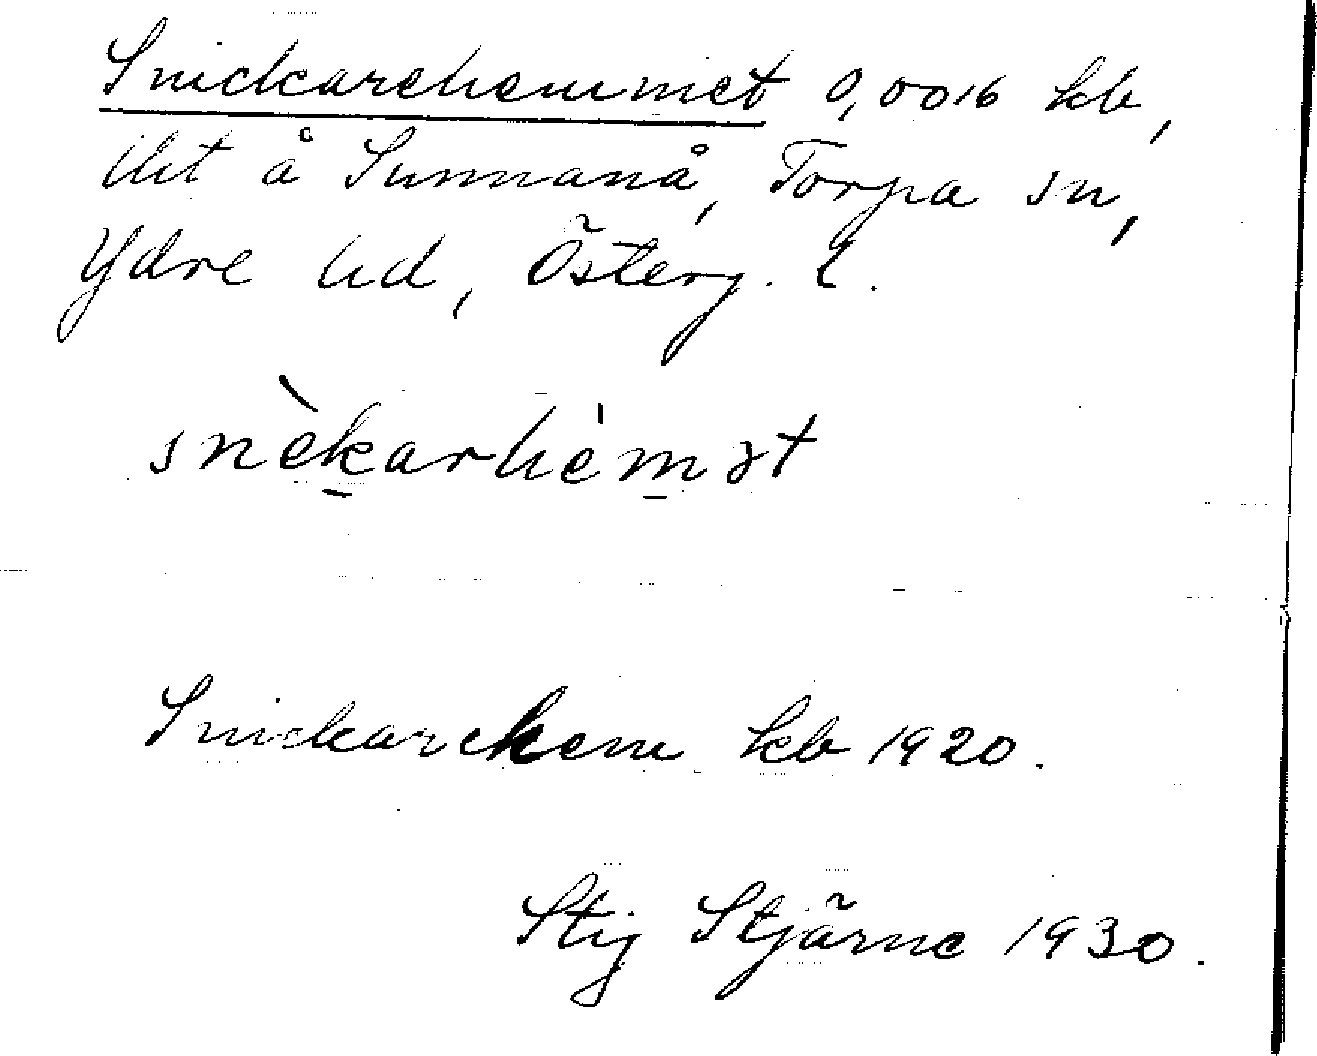 Snickarehemmet 0,0016 kb,
lht å Sunnanå, Torpa sn,
Ydre hd, Österg. l.
snèkarhèmət
Snickarehem kb 1920.
Stig Stjärne 1930.